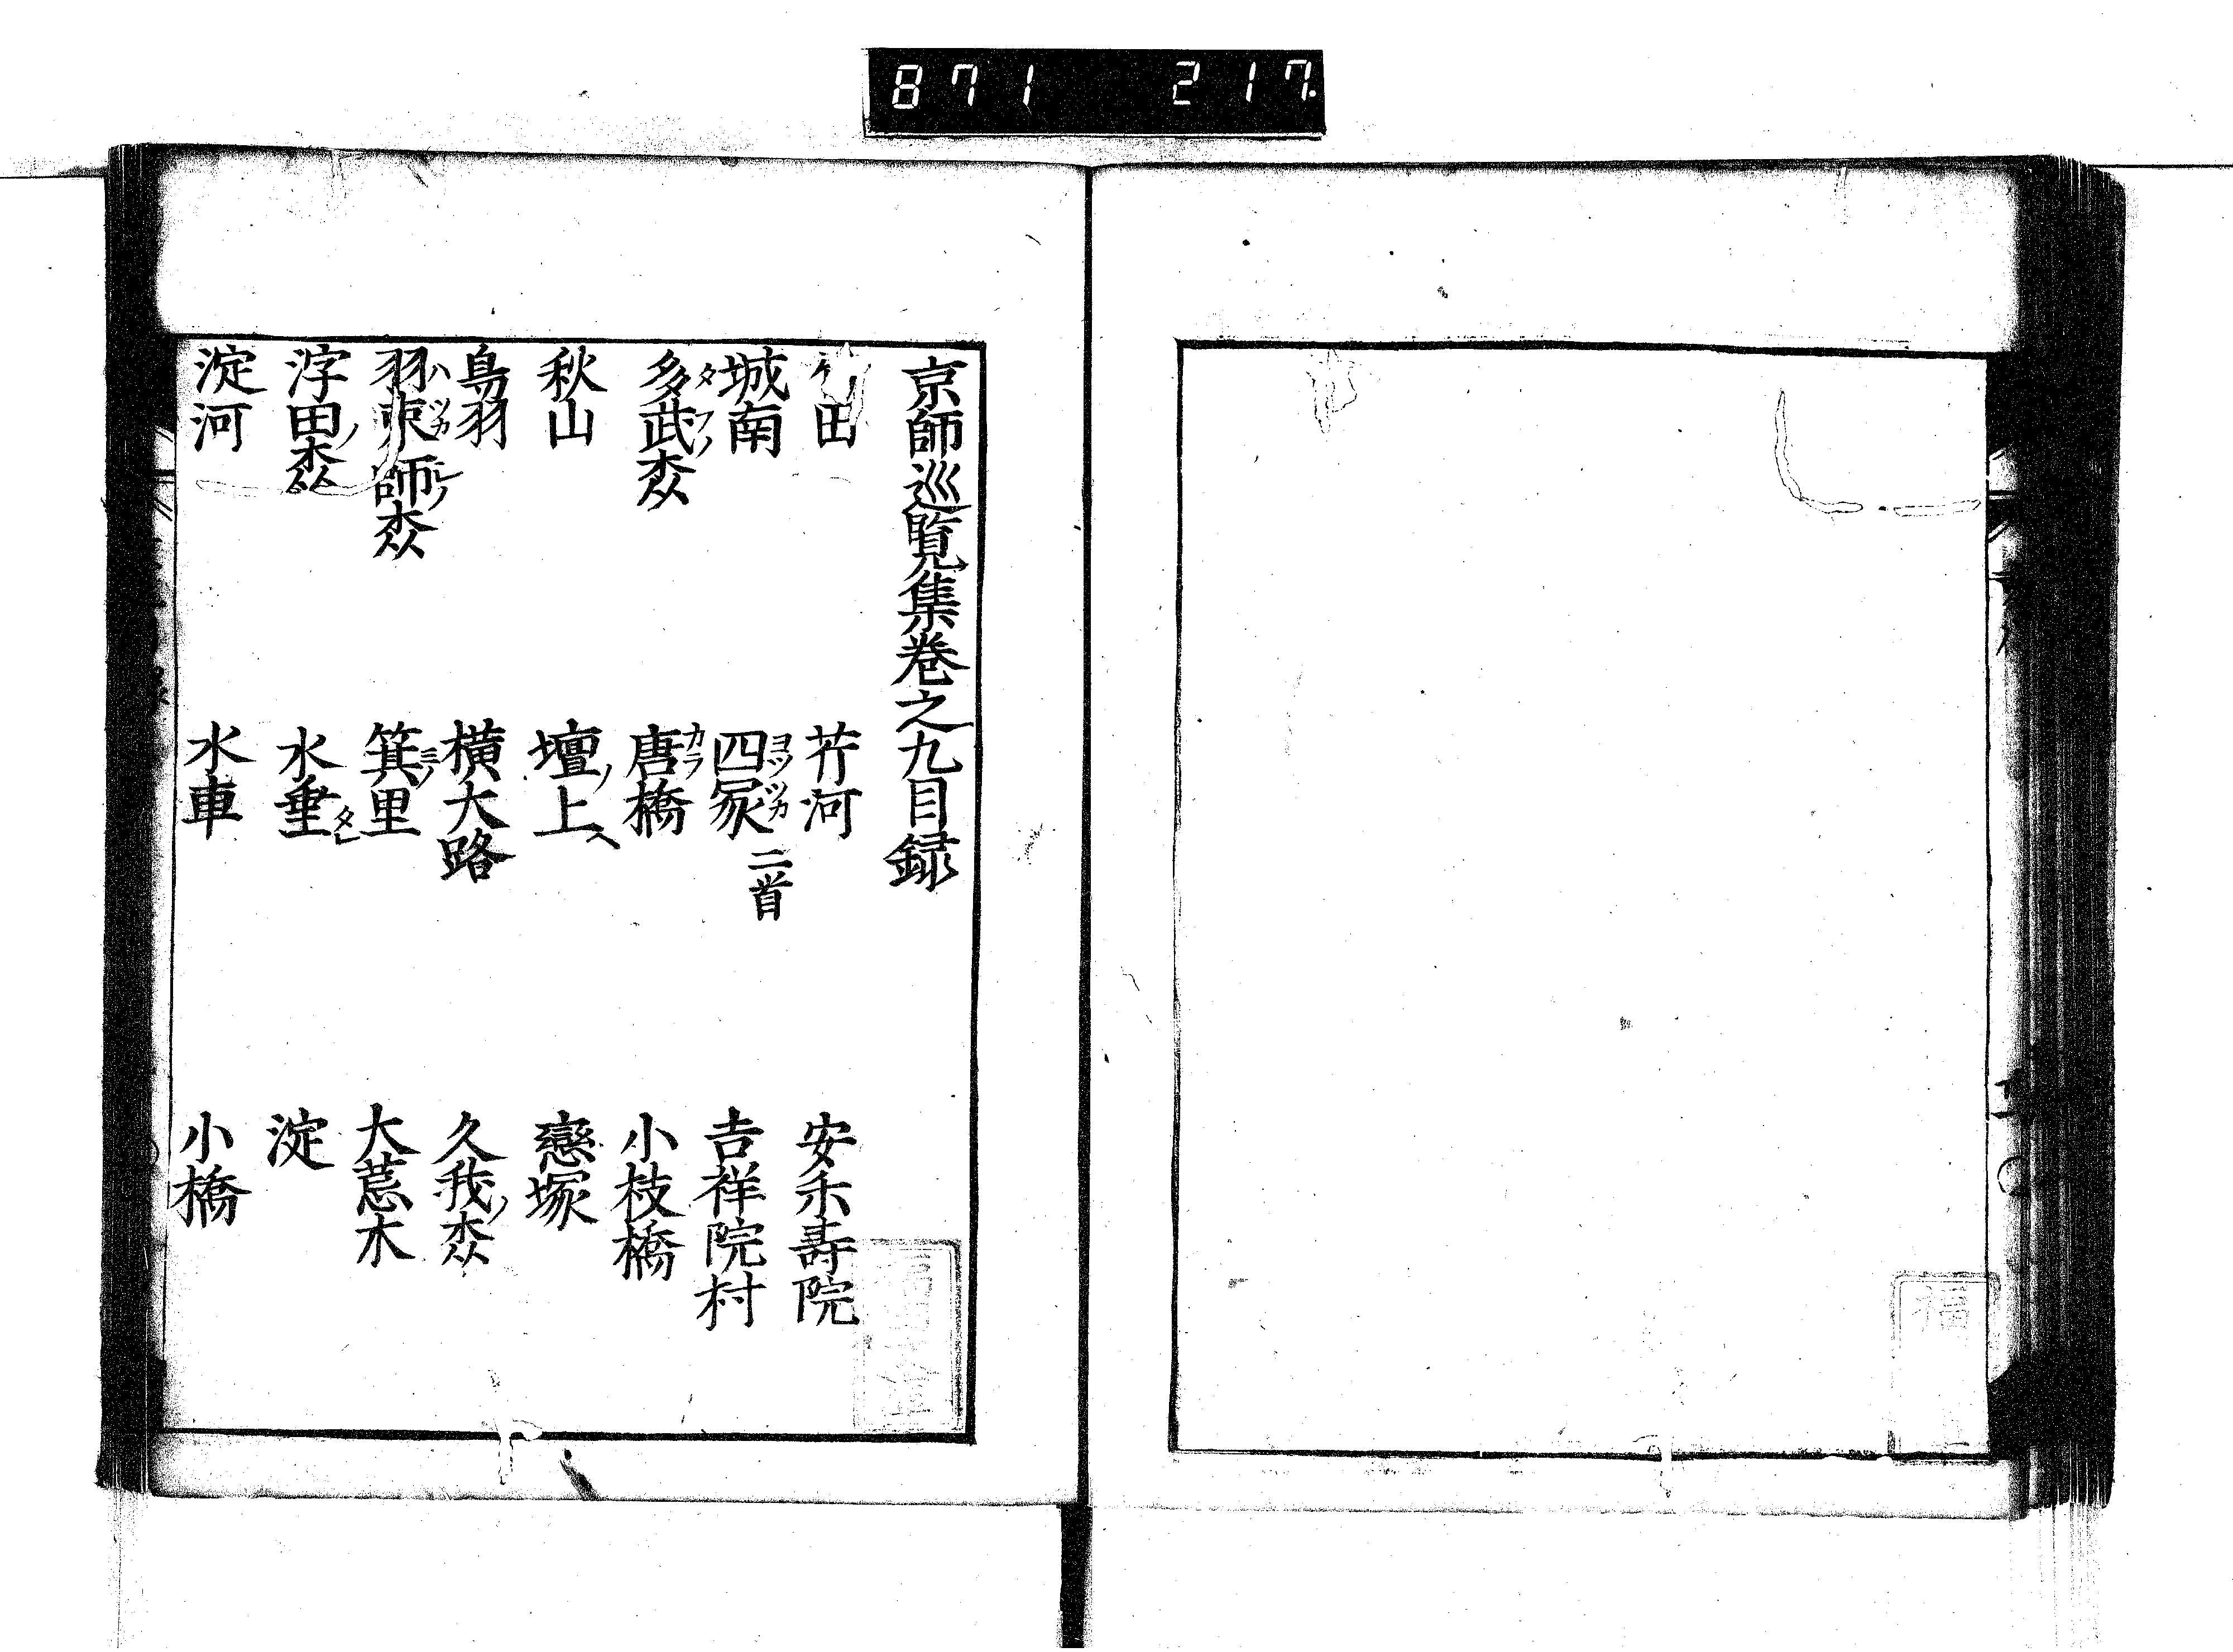 871 217
京師巡覧集巻之九目録
田 芹河 安禾壽院
城南 四冡ヨツツカ二首 吉祥院村
多武枩タフノ 唐橋カラ 小枝橋
秋山 壇ノ上ヘ 戀塚
鳥羽 横大路 久我ノ枩
羽束師枩ハツカシノ 箕里ミノ 大荒木
浮田ノ枩 水垂タレ 淀
淀河 水車 小橋